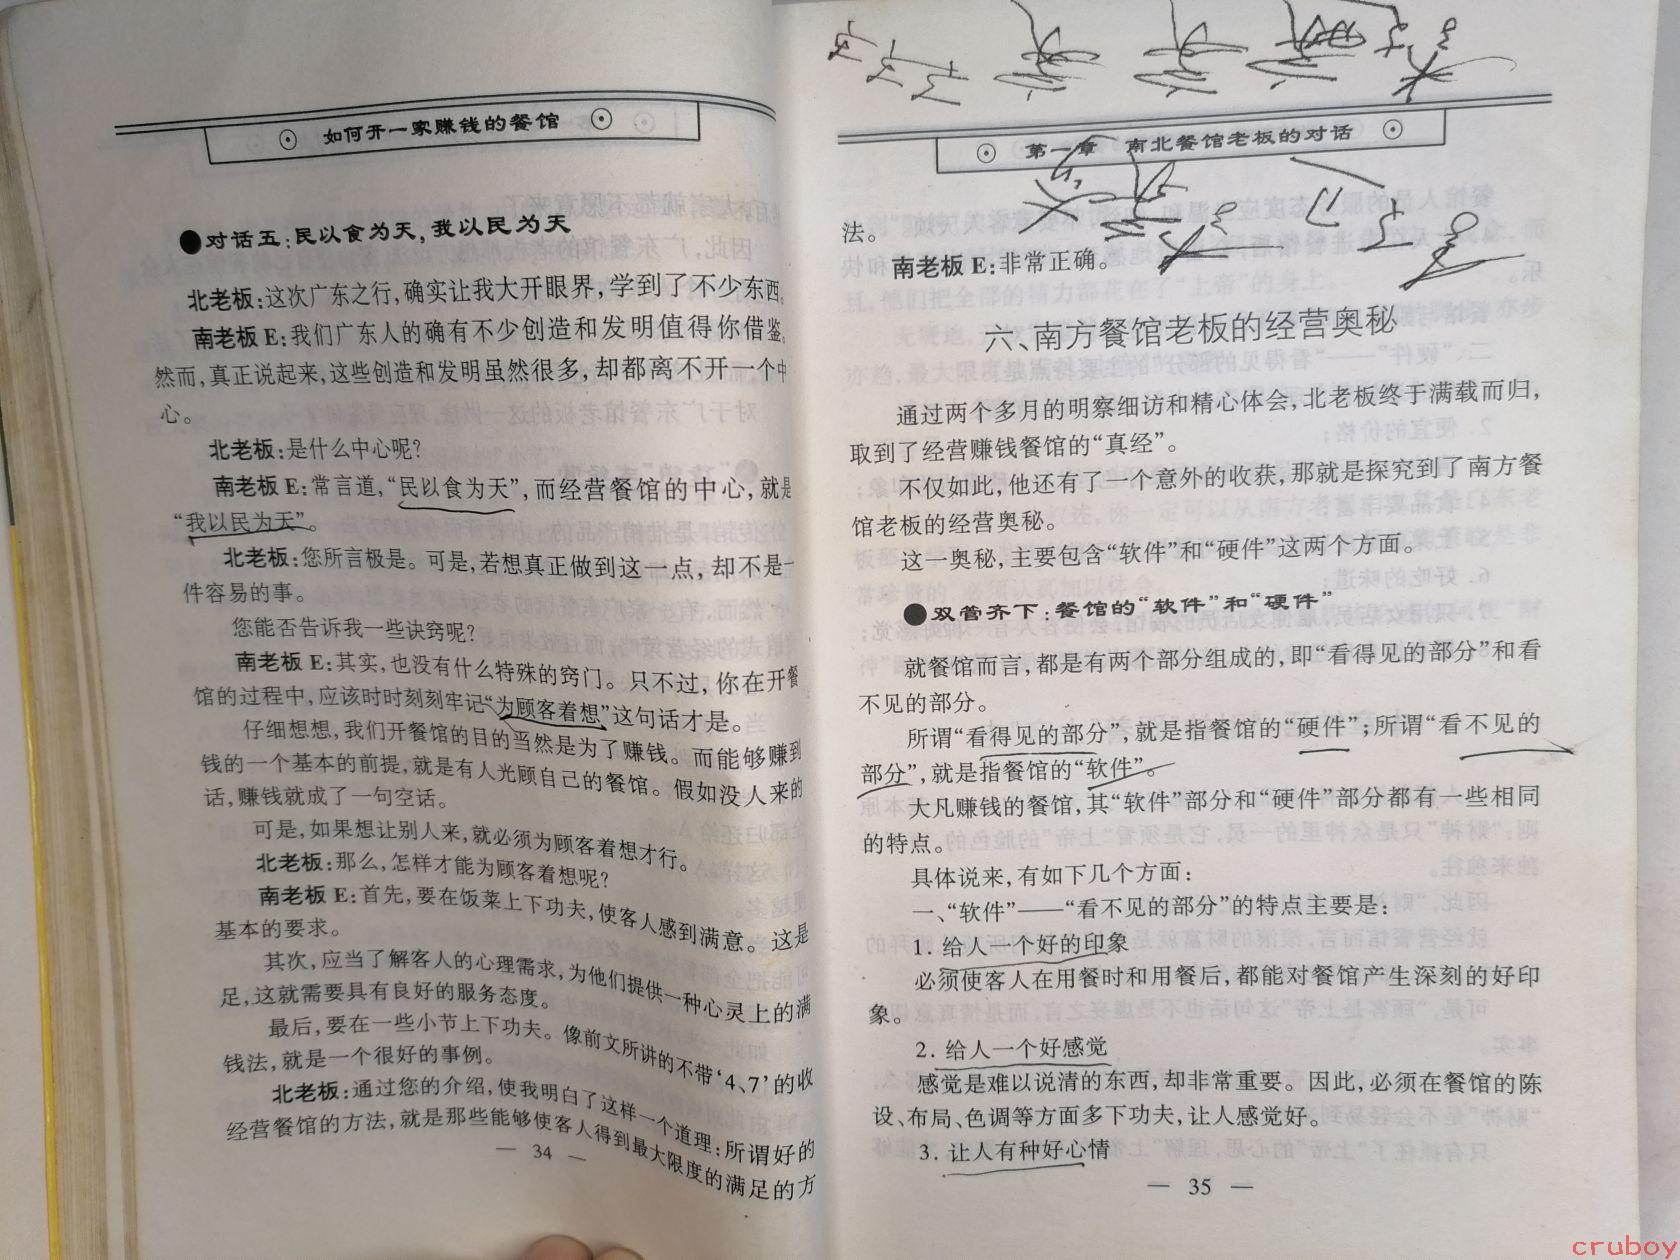 如何开一家赚钱的餐馆
●对话五：民以食为天，我以民为天
北老板：这次广东之行，确实让我大开眼界，学到了不少东西。
南老板 E：我们广东人的确有不少创造和发明值得你借鉴。
然而，真正说起来，这些创造和发明虽然很多，却都离不开一个中
心。
北老板：是什么中心呢？
南老板 E：常言道，“民以食为天”，而经营餐馆的中心，就是
“我以民为天”。
北老板：您所言极是。可是，若想真正做到这一点，却不是一
件容易的事。
您能否告诉我一些诀窍呢？
南老板 E：其实，也没有什么特殊的窍门。只不过，你在开餐
馆的过程中，应该时时刻刻牢记“为顾客着想”这句话才是。
仔细想想，我们开餐馆的目的当然是为了赚钱。而能够赚到
钱的一个基本的前提，就是有人光顾自己的餐馆。假如没人来的
话，赚钱就成了一句空话。
可是，如果想让别人来，就必须为顾客着想才行。
北老板：那么，怎样才能为顾客着想呢？
南老板 E：首先，要在饭菜上下功夫，使客人感到满意。这是
基本的要求。
其次，应当了解客人的心理需求，为他们提供一种心灵上的满
足，这就需要具有良好的服务态度。
最后，要在一些小节上下功夫。像前文所讲的不带‘4、7’的收
钱法，就是一个很好的事例。
北老板：通过您的介绍，使我明白了这样一个道理：所谓好的
经营餐馆的方法，就是那些能够使客人得到最大限度的满足的方
— 34 —
第一章 南北餐馆老板的对话
法。
南老板 E：非常正确。
六、南方餐馆老板的经营奥秘
通过两个多月的明察细访和精心体会，北老板终于满载而归，
取到了经营赚钱餐馆的“真经”。
不仅如此，他还有了一个意外的收获，那就是探究到了南方餐
馆老板的经营奥秘。
这一奥秘，主要包含“软件”和“硬件”这两个方面。
●双管齐下：餐馆的“软件”和“硬件”
就餐馆而言，都是有两个部分组成的，即“看得见的部分”和看
不见的部分。
所谓“看得见的部分”，就是指餐馆的“硬件”；所谓“看不见的
部分”，就是指餐馆的“软件”。
大凡赚钱的餐馆，其“软件”部分和“硬件”部分都有一些相同
的特点。
具体说来，有如下几个方面：
一、“软件”——“看不见的部分”的特点主要是：
1. 给人一个好的印象
必须使客人在用餐时和用餐后，都能对餐馆产生深刻的好印
象。
2. 给人一个好感觉
感觉是难以说清的东西，却非常重要。因此，必须在餐馆的陈
设、布局、色调等方面多下功夫，让人感觉好。
3. 让人有种好心情
— 35 —
cruboy